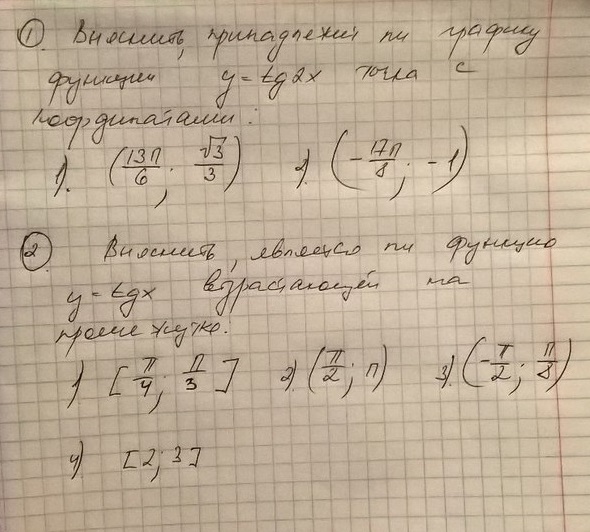 ① Выяснить, принадлежит ли графику
функции y = tg2x точка с
координатами:
1). (13π/6; √3/3) 2). (-17π/8; -1)
② Выяснить, является ли функция
y = tgx возрастающей на
промежутке.
1) [π/4; π/3] 2). (π/2; π) 3). (-π/2; π/8)
4) [2; 3]